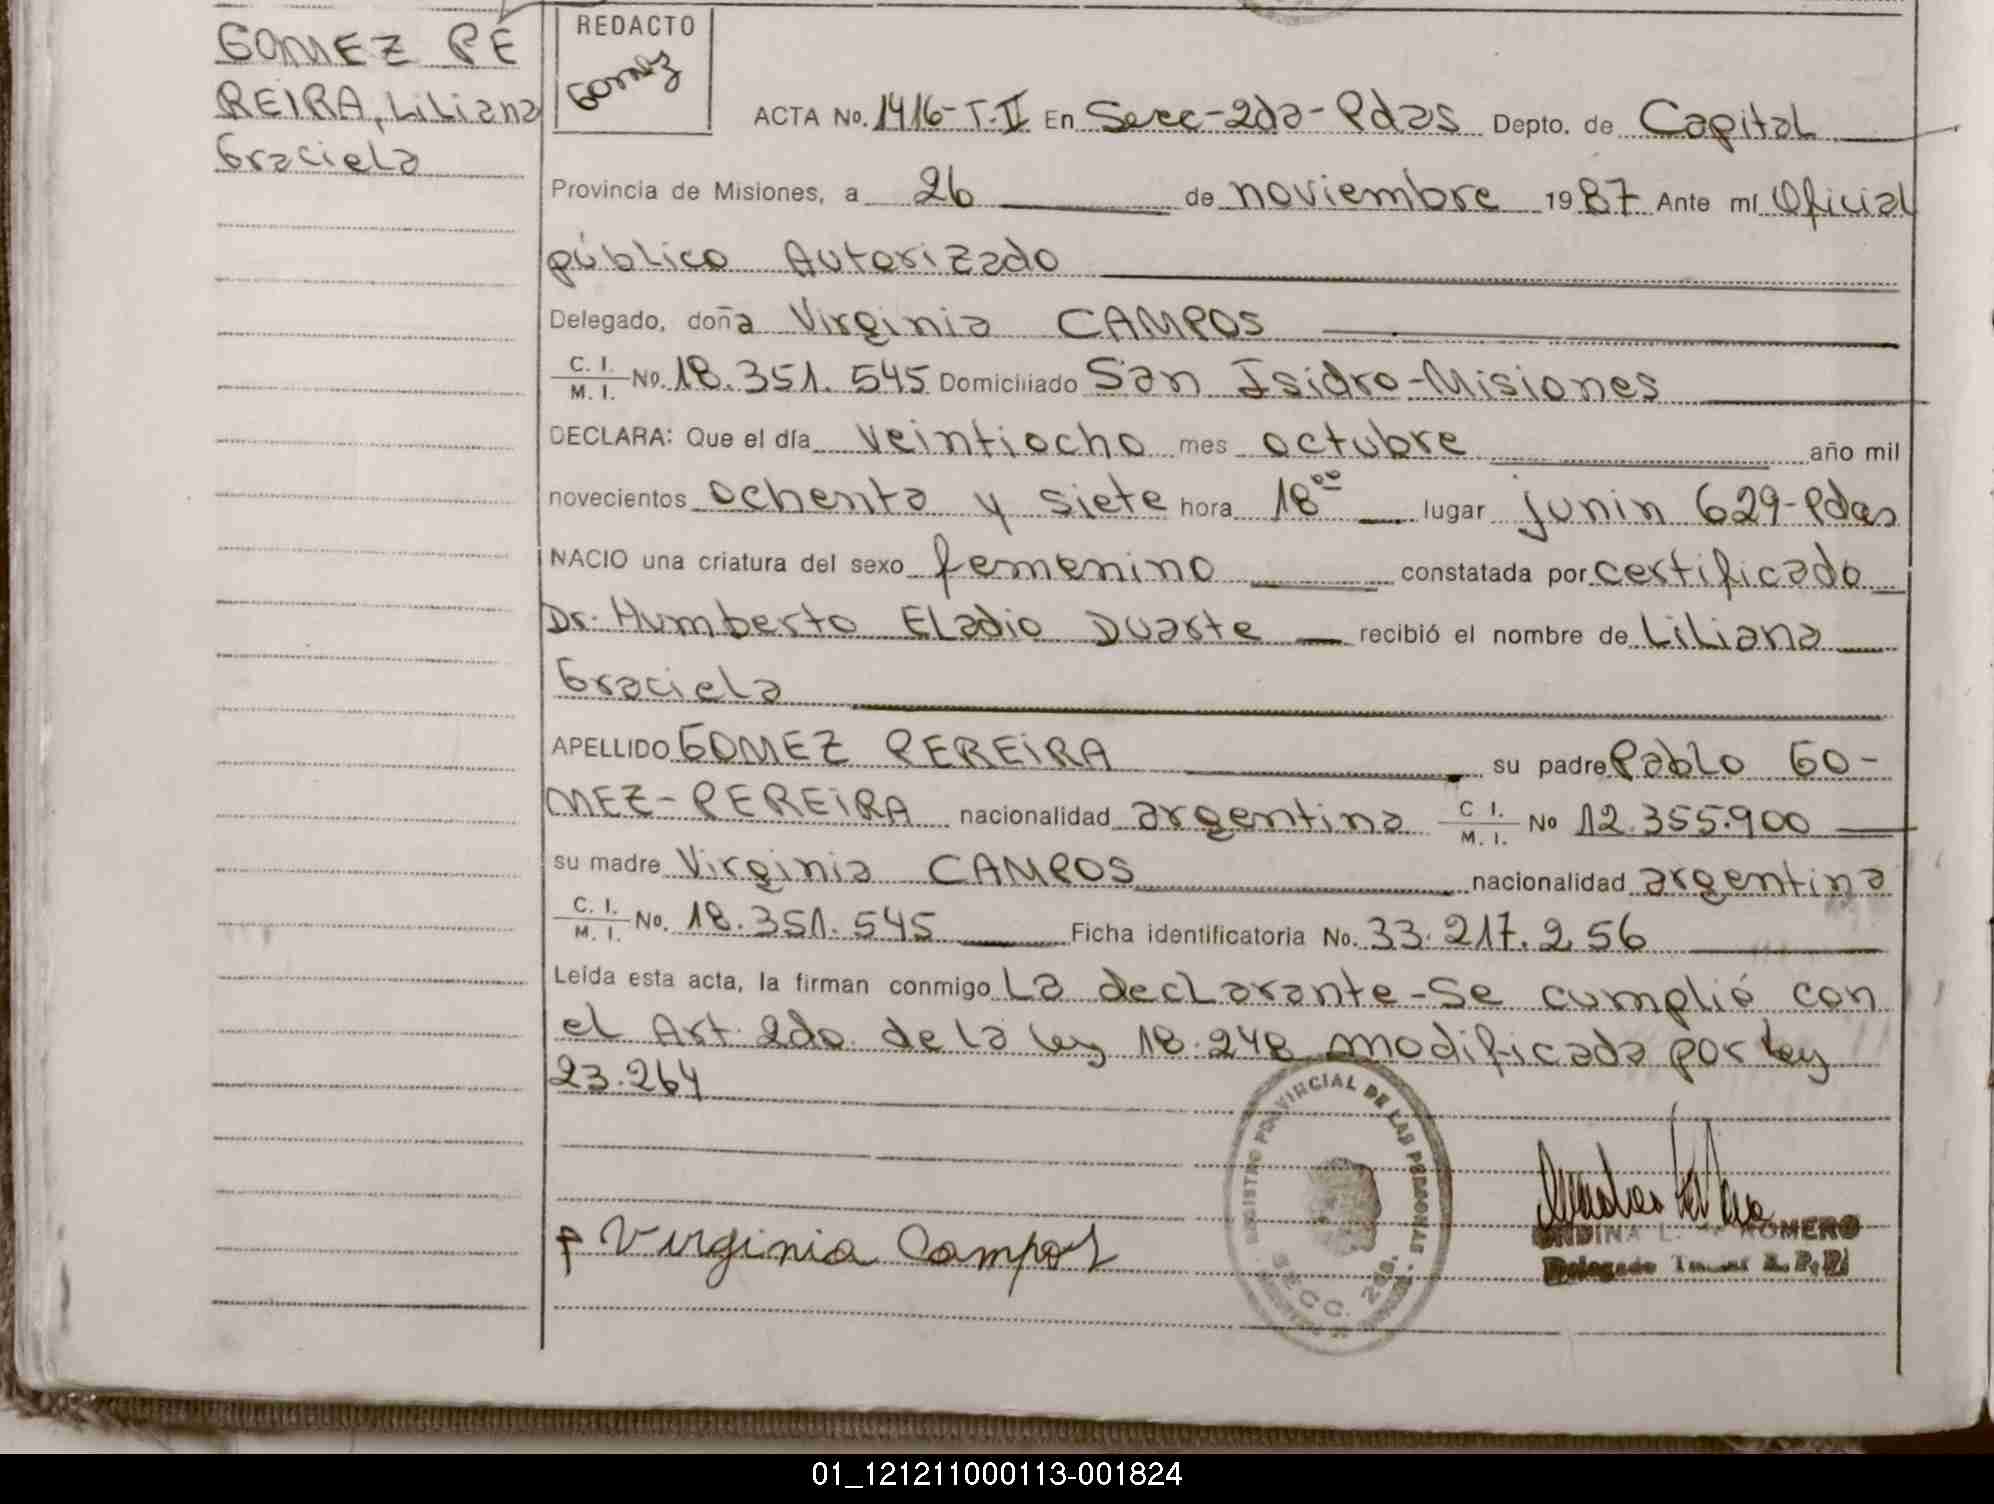 GOMEZ PE
REIRA, Liliana
Graciela
REDACTO
Gomez
ACTA No. 1416-T.II En Secc-2da-Pdas Depto. de Capital
Provincia de Misiones, a 26 de noviembre 1987 Ante mí Oficial
público Autorizado
Delegado, doña Virginia CAMPOS
C. I. / M. I. No. 18.351.545 Domiciliado San Isidro-Misiones
DECLARA: Que el día veintiocho mes octubre año mil
novecientos ochenta y siete hora 18°° lugar junin 629-Pdas
NACIO una criatura del sexo femenino constatada por certificado
Dr. Humberto Eladio Duarte recibió el nombre de Liliana
Graciela
APELLIDO GOMEZ PEREIRA su padre Pablo GO-
MEZ-PEREIRA nacionalidad argentina C I. / M. I. No 12.355.900
su madre Virginia CAMPOS nacionalidad argentina
C. I. / M. I. No. 18.351.545 Ficha identificatoria No. 33.217.256
Leída esta acta, la firman conmigo La declarante-Se cumplió con
el Art. 2do. de la ley 18.248 modificada por ley
23.264
REGISTRO PROVINCIAL DE LAS PERSONAS
SECC. 2da.
Virginia Campos
ROMERO
Delegado
01_121211000113-001824